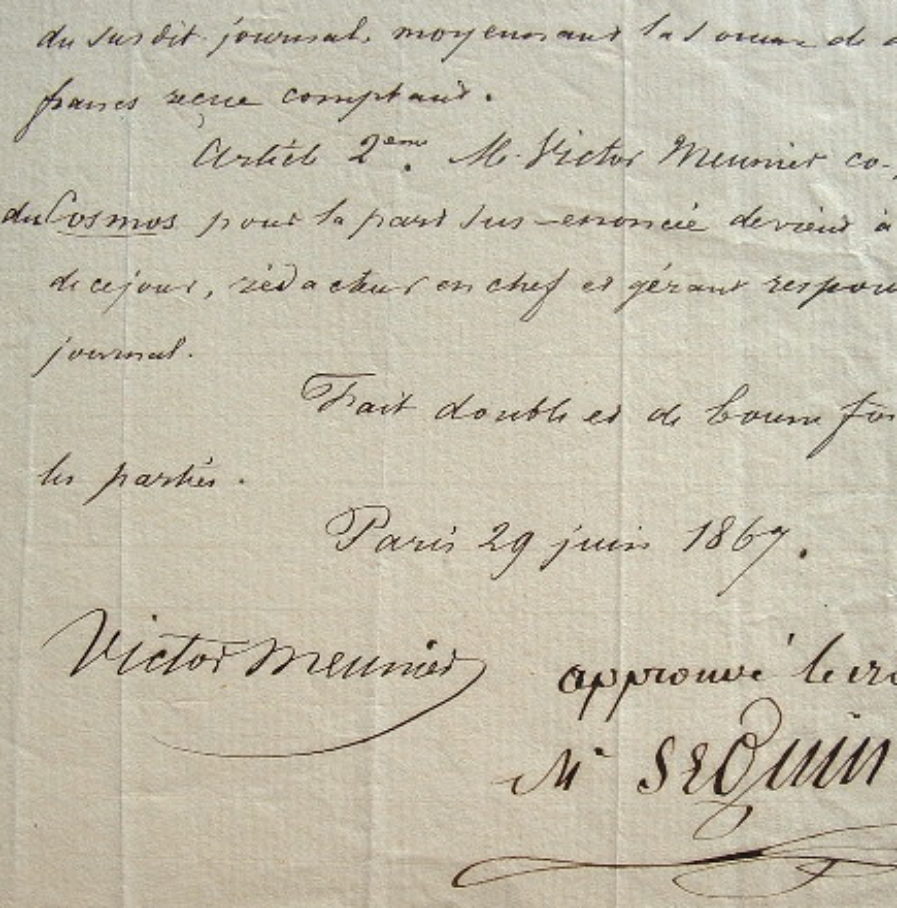 du susdit journal, moyennant la somme de
francs reçue comptant.
Article 2eme. M. Victor Meunier co-
du Cosmos pour la part sus-enoncée devient à
de ce jour, rédacteur en chef et gérant respon
journal.
Fait double et de bonne foi
les parties.
Paris 29 juin 1867.
Victor Meunier
approuvé
M SEGuin